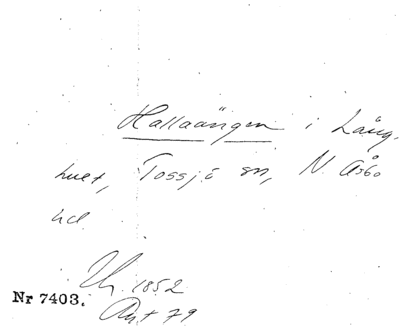 Hallaängen i Lång-
huet, Tossjö sn, N. Åsbo
hd.
Uh. 1852
Nr 7403.
Ant 79